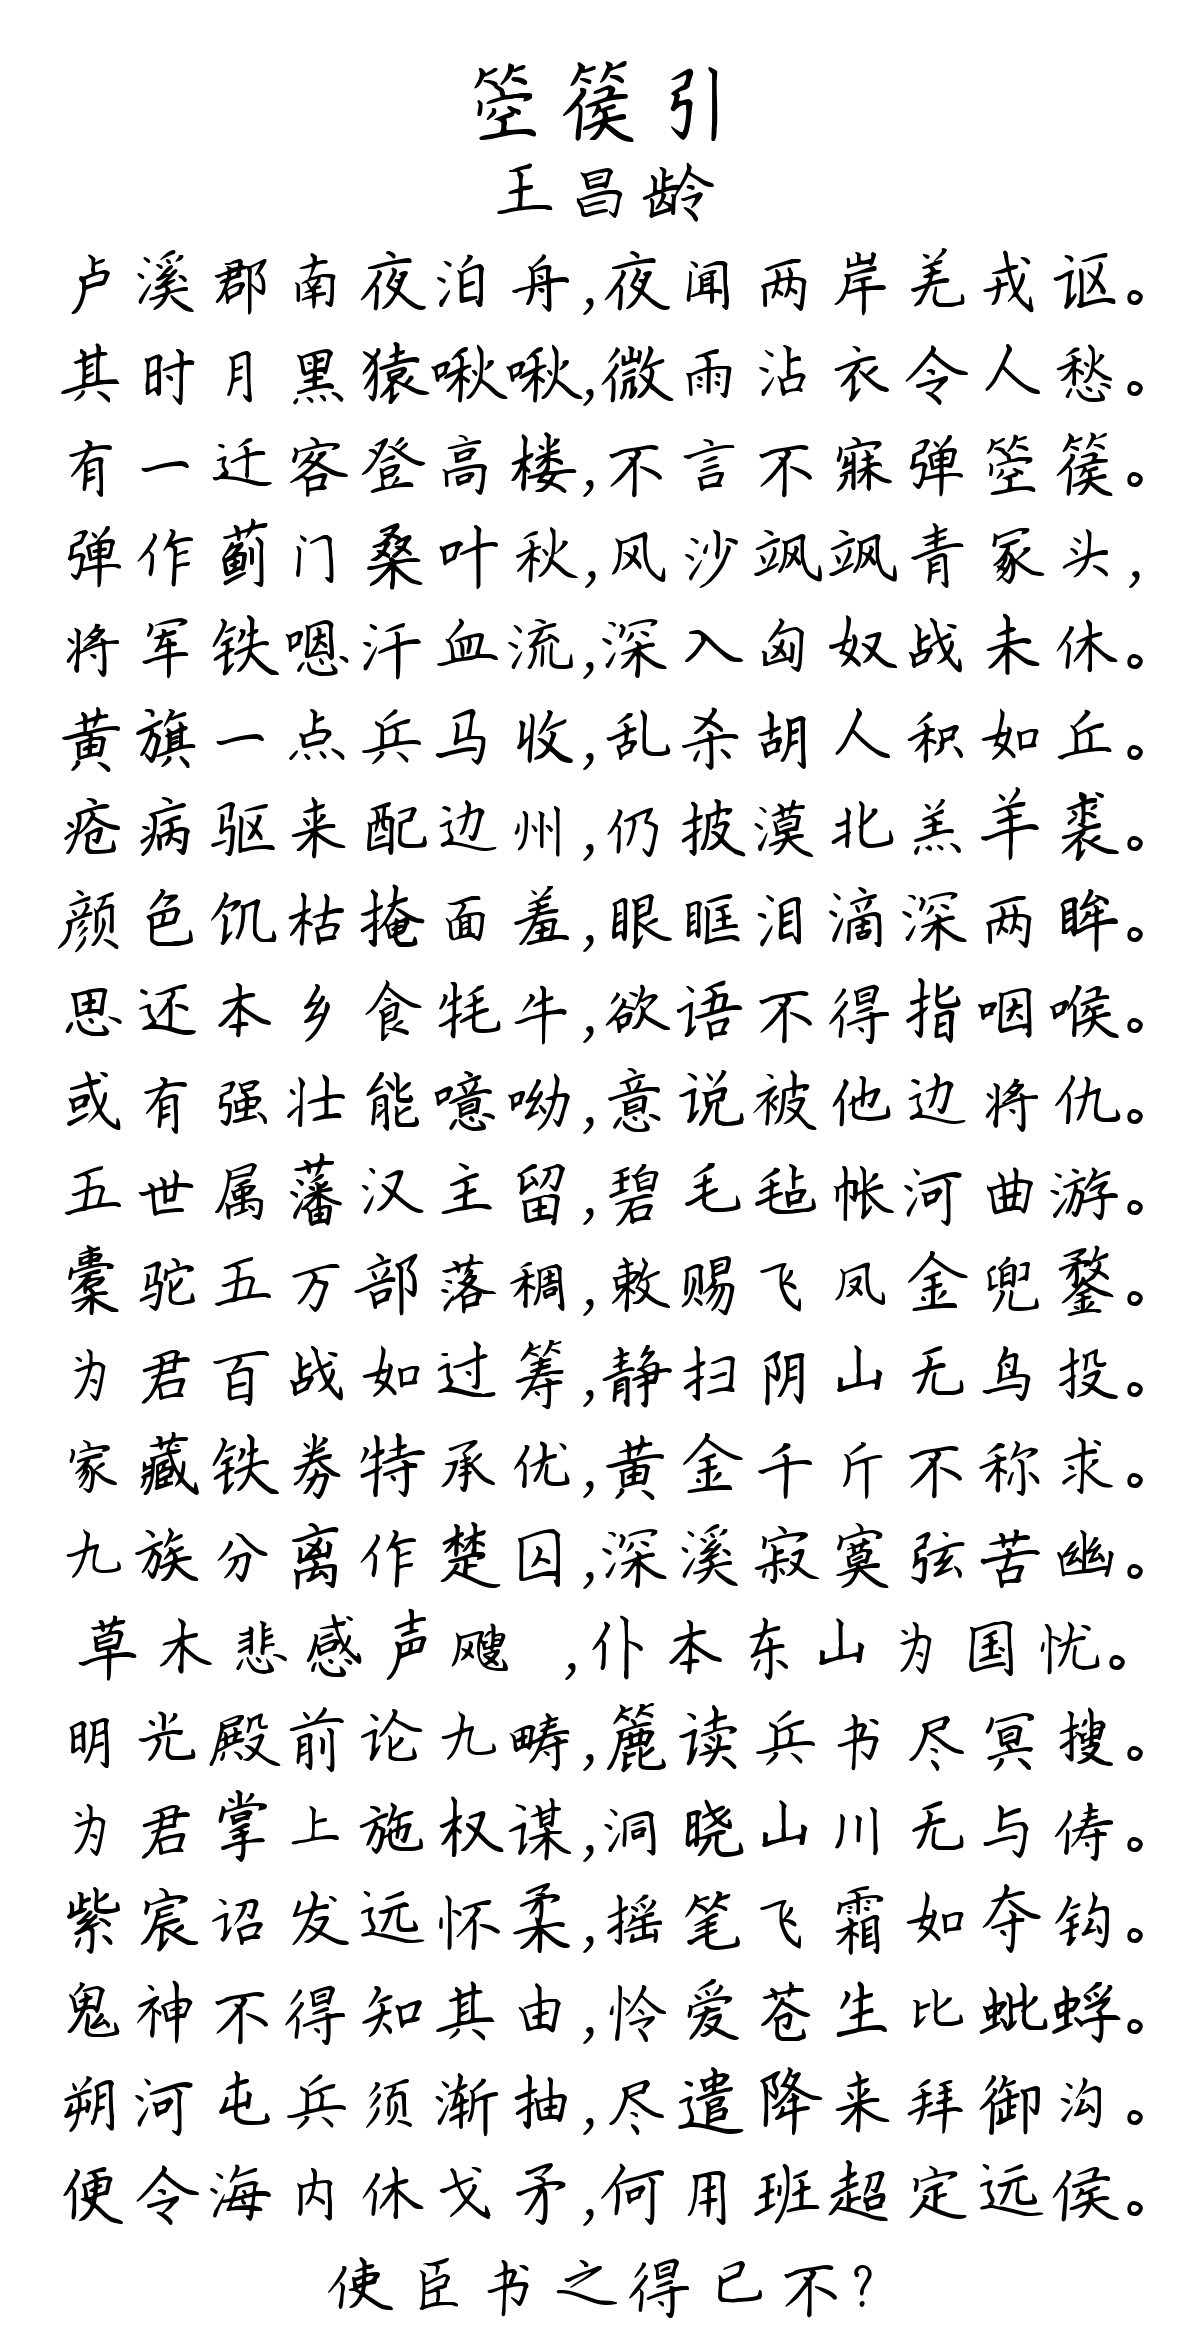 箜篌引
王昌龄
卢溪郡南夜泊舟,夜闻两岸羌戎讴。
其时月黑猿啾啾,微雨沾衣令人愁。
有一迁客登高楼,不言不寐弹箜篌。
弹作蓟门桑叶秋,风沙飒飒青冢头,
将军铁嗯汗血流,深入匈奴战未休。
黄旗一点兵马收,乱杀胡人积如丘。
疮病驱来配边州,仍披漠北羔羊裘。
颜色饥枯掩面羞,眼眶泪滴深两眸。
思还本乡食牦牛,欲语不得指咽喉。
或有强壮能噫呦,意说被他边将仇。
五世属藩汉主留,碧毛毡帐河曲游。
橐驼五万部落稠,敕赐飞凤金兜鍪。
为君百战如过筹,静扫阴山无鸟投。
家藏铁券特承优,黄金千斤不称求。
九族分离作楚囚,深溪寂寞弦苦幽。
草木悲感声飕 ,仆本东山为国忧。
明光殿前论九畴,簏读兵书尽冥搜。
为君掌上施权谋,洞晓山川无与俦。
紫宸诏发远怀柔,摇笔飞霜如夺钩。
鬼神不得知其由,怜爱苍生比蚍蜉。
朔河屯兵须渐抽,尽遣降来拜御沟。
便令海内休戈矛,何用班超定远侯。
使臣书之得已不?